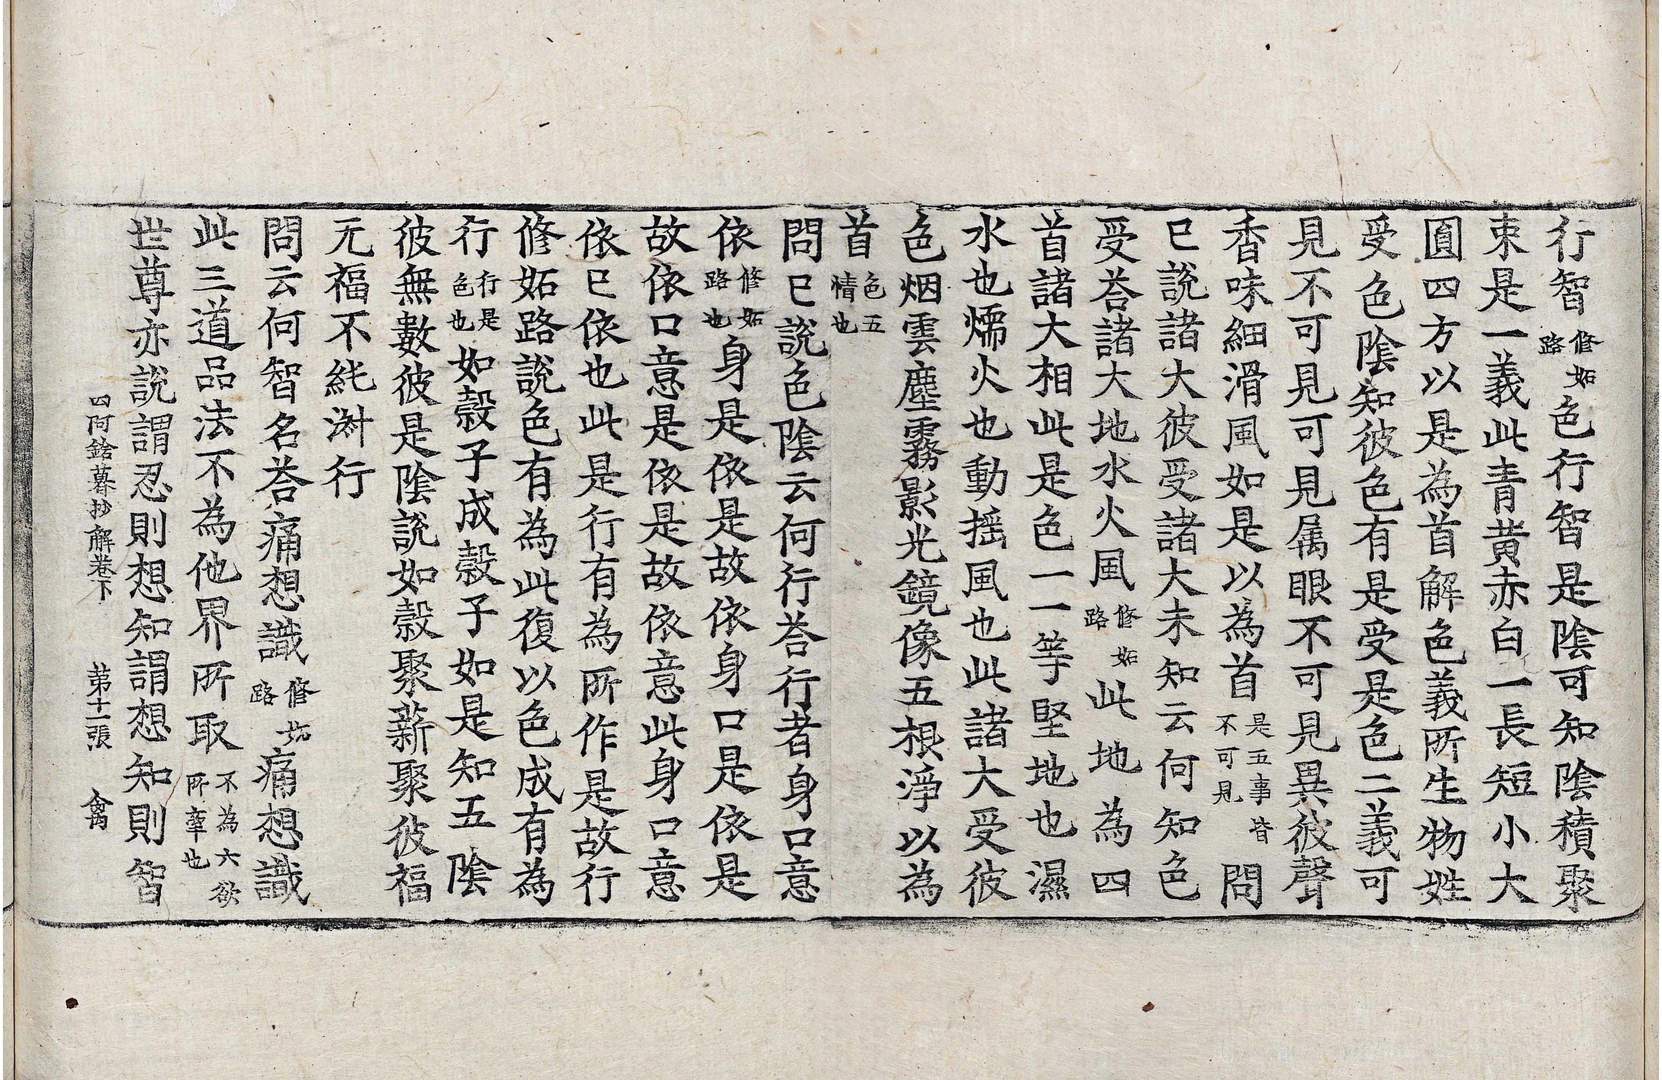 行智修妬路色行智是陰可知陰積聚
束是一義此青黃赤白一長短小大
圓四方以是為首解色義所生物姓
受色陰知彼色有是受是色二義可
見不可見可見属眼不可見異彼聲
香味細滑風如是以為首是五事皆不可見問
已說諸大彼受諸大未知云何知色
受荅諸大地水火風修妬路此地為四
首諸大相此是色一一等堅地也濕
水也㷸火也動揺風也此諸大受彼
色烟雲塵霧影光鏡像五根淨以為
首色五情也
問已說色陰云何行荅行者身口意
依修妬路也身是依是故依身口是依是
故依口意是依是故依意此身口意
依已依也此是行有為所作是故行
修妬路說色有為此復以色成有為
行行是色也如縠子成縠子如是知五陰
彼無數彼是陰說如縠聚薪聚彼福
元福不純濣行
問云何智名荅痛想識修妬路痛想識
此三道品法不為他界所取不為六欲所牽也
世尊亦說謂忍則想知謂想知則智
四阿鋡暮抄解卷下 第十一張 禽